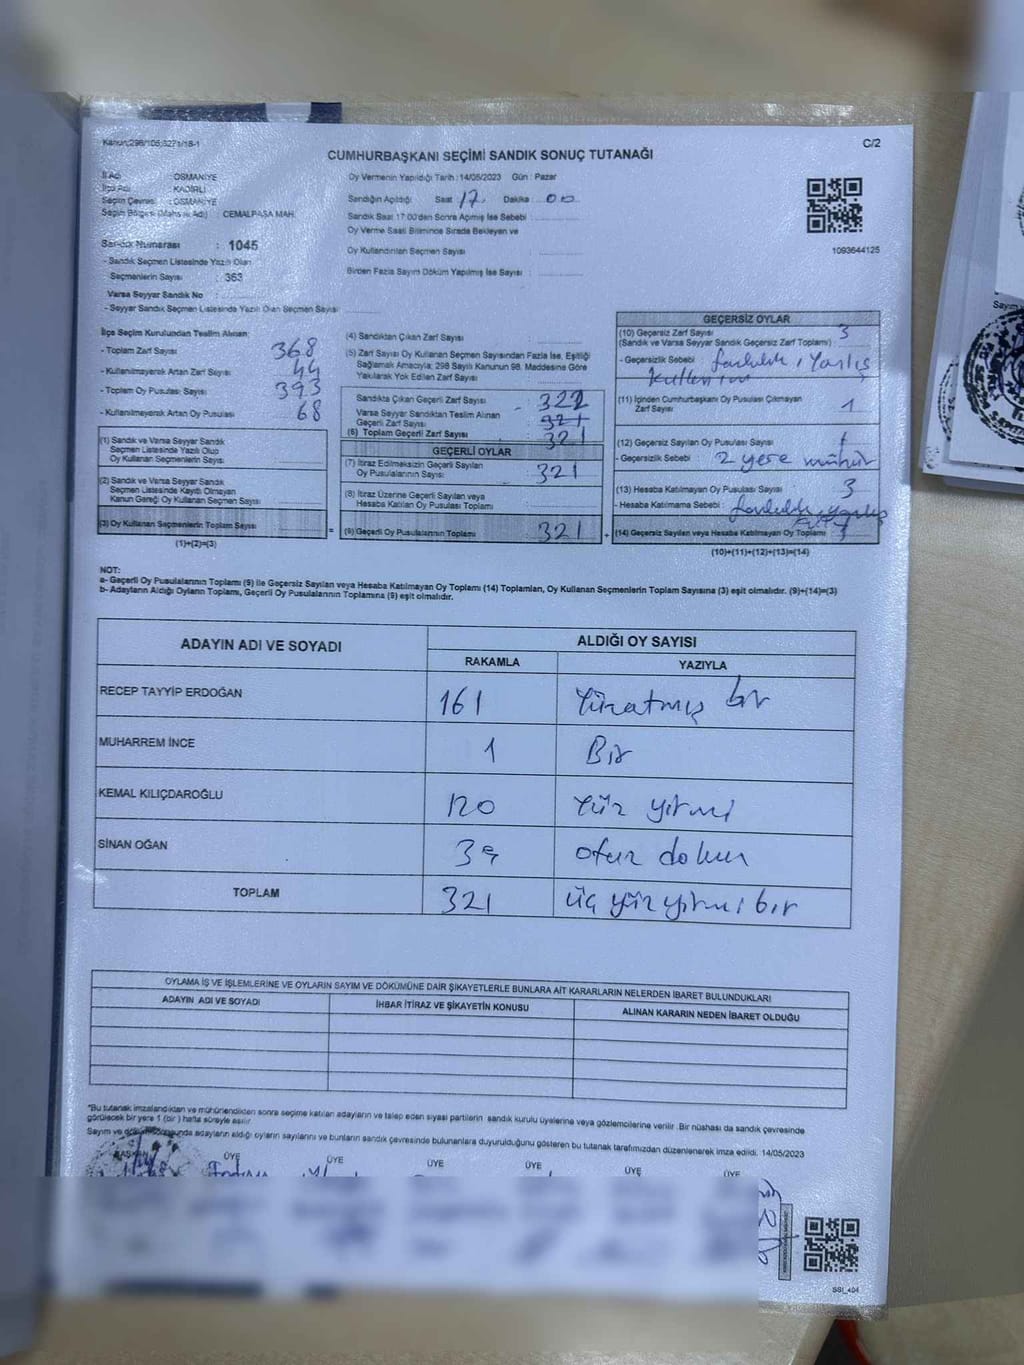 Kanun:298/105;6271/18-1
C/2
CUMHURBAŞKANI SEÇİMİ SANDIK SONUÇ TUTANAĞI
İl Adı : OSMANİYE
İlçe Adı : KADİRLİ
Seçim Çevresi : OSMANİYE
Seçim Bölgesi (Mahalle Adı) : CEMALPAŞA MAH.
Sandık Numarası : 1045
- Sandık Seçmen Listesinde Yazılı Olan
Seçmenlerin Sayısı : 363
Varsa Seyyar Sandık No :
- Seyyar Sandık Seçmen Listesinde Yazılı Olan Seçmen Sayısı :
Oy Vermenin Yapıldığı Tarih : 14/05/2023 Gün : Pazar
Sandığın Açıldığı Saat 17 Dakika 00
Sandık Saat 17:00'den Sonra Açılmış İse Sebebi :
Oy Verme Saati Bitiminde Sırada Bekleyen ve
Oy Kullandırılan Seçmen Sayısı :
Birden Fazla Sayım Döküm Yapılmış İse Sayısı :
1093644125
İlçe Seçim Kurulundan Teslim Alınan:
- Toplam Zarf Sayısı 368
- Kullanılmayarak Artan Zarf Sayısı : 44
- Toplam Oy Pusulası Sayısı 393
- Kullanılmayarak Artan Oy Pusulası 68
(1) Sandık ve Varsa Seyyar Sandık
Seçmen Listesinde Yazılı Olup
Oy Kullanan Seçmenlerin Sayısı
(2) Sandık ve Varsa Seyyar Sandık
Seçmen Listesinde Kayıtlı Olmayan
Kanun Gereği Oy Kullanan Seçmen Sayısı
(3) Oy Kullanan Seçmenlerin Toplam Sayısı =
(1)+(2)=(3)
(4) Sandıktan Çıkan Zarf Sayısı :
(5) Zarf Sayısı Oy Kullanan Seçmen Sayısından Fazla İse, Eşitliği
Sağlamak Amacıyla; 298 Sayılı Kanunun 98. Maddesine Göre
Yakılarak Yok Edilen Zarf Sayısı :
Sandıkta Çıkan Geçerli Zarf Sayısı 322
Varsa Seyyar Sandıktan Teslim Alınan
Geçerli Zarf Sayısı 321
(6) Toplam Geçerli Zarf Sayısı 321
GEÇERLİ OYLAR
(7) İtiraz Edilmeksizin Geçerli Sayılan
Oy Pusulalarının Sayısı : 321
(8) İtiraz Üzerine Geçerli Sayılan veya
Hesaba Katılan Oy Pusulası Toplamı
(9) Geçerli Oy Pusulalarının Toplamı 321 +
GEÇERSİZ OYLAR
(10) Geçersiz Zarf Sayısı 3
(Sandık ve Varsa Seyyar Sandık Geçersiz Zarf Toplamı) :
- Geçersizlik Sebebi : fazlalık, Yanlış
kullanım
(11) İçinden Cumhurbaşkanı Oy Pusulası Çıkmayan
Zarf Sayısı 1
(12) Geçersiz Sayılan Oy Pusulası Sayısı : 1
- Geçersizlik Sebebi 2 yere mühür
(13) Hesaba Katılmayan Oy Pusulası Sayısı 3
- Hesaba Katılmama Sebebi : fazlalık yanlış
(14) Geçersiz Sayılan veya Hesaba Katılmayan Oy Toplamı
(10)+(11)+(12)+(13)=(14)
NOT:
a- Geçerli Oy Pusulalarının Toplamı (9) ile Geçersiz Sayılan veya Hesaba Katılmayan Oy Toplamı (14) Toplamları, Oy Kullanan Seçmenlerin Toplam Sayısına (3) eşit olmalıdır. (9)+(14)=(3)
b- Adayların Aldığı Oyların Toplamı, Geçerli Oy Pusulalarının Toplamına (9) eşit olmalıdır.
ADAYIN ADI VE SOYADI ALDIĞI OY SAYISI
RAKAMLA YAZIYLA
RECEP TAYYİP ERDOĞAN 161 Yüzatmış bir
MUHARREM İNCE 1 Bir
KEMAL KILIÇDAROĞLU 120 Yüz yirmi
SİNAN OĞAN 39 otuz dokuz
TOPLAM 321 üç yüz yirmi bir
OYLAMA İŞ VE İŞLEMLERİNE VE OYLARIN SAYIM VE DÖKÜMÜNE DAİR ŞİKAYETLERLE BUNLARA AİT KARARLARIN NELERDEN İBARET BULUNDUKLARI
ADAYIN ADI VE SOYADI İHBAR İTİRAZ VE ŞİKAYETİN KONUSU ALINAN KARARIN NEDEN İBARET OLDUĞU
*Bu tutanak imzalandıktan ve mühürlendikten sonra seçime katılan adayların ve talep eden siyasi partilerin sandık kurulu üyelerine veya gözlemcilerine verilir. Bir nüshası da sandık çevresinde
görülecek bir yere 1 (bir) hafta süreyle asılır.
Sayım ve dökümü sonunda adayların aldığı oyların sayılarını ve bunların sandık çevresinde bulunanlara duyurulduğunu gösteren bu tutanak tarafımızdan düzenlenerek imza edildi. 14/05/2023
BAŞKAN ÜYE ÜYE ÜYE ÜYE ÜYE ÜYE
SSI_404